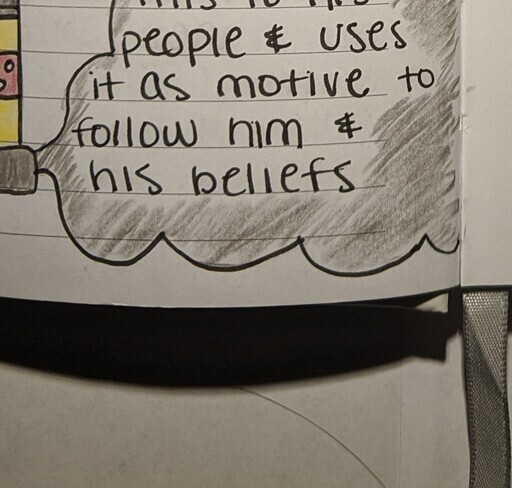 people & uses
it as motive to
follow him &
his beliefs